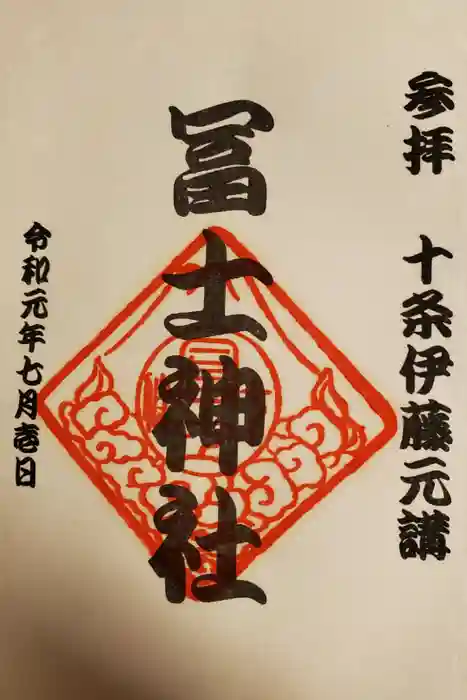 参拝　十条伊藤元講
冨士神社
令和元年七月壱日